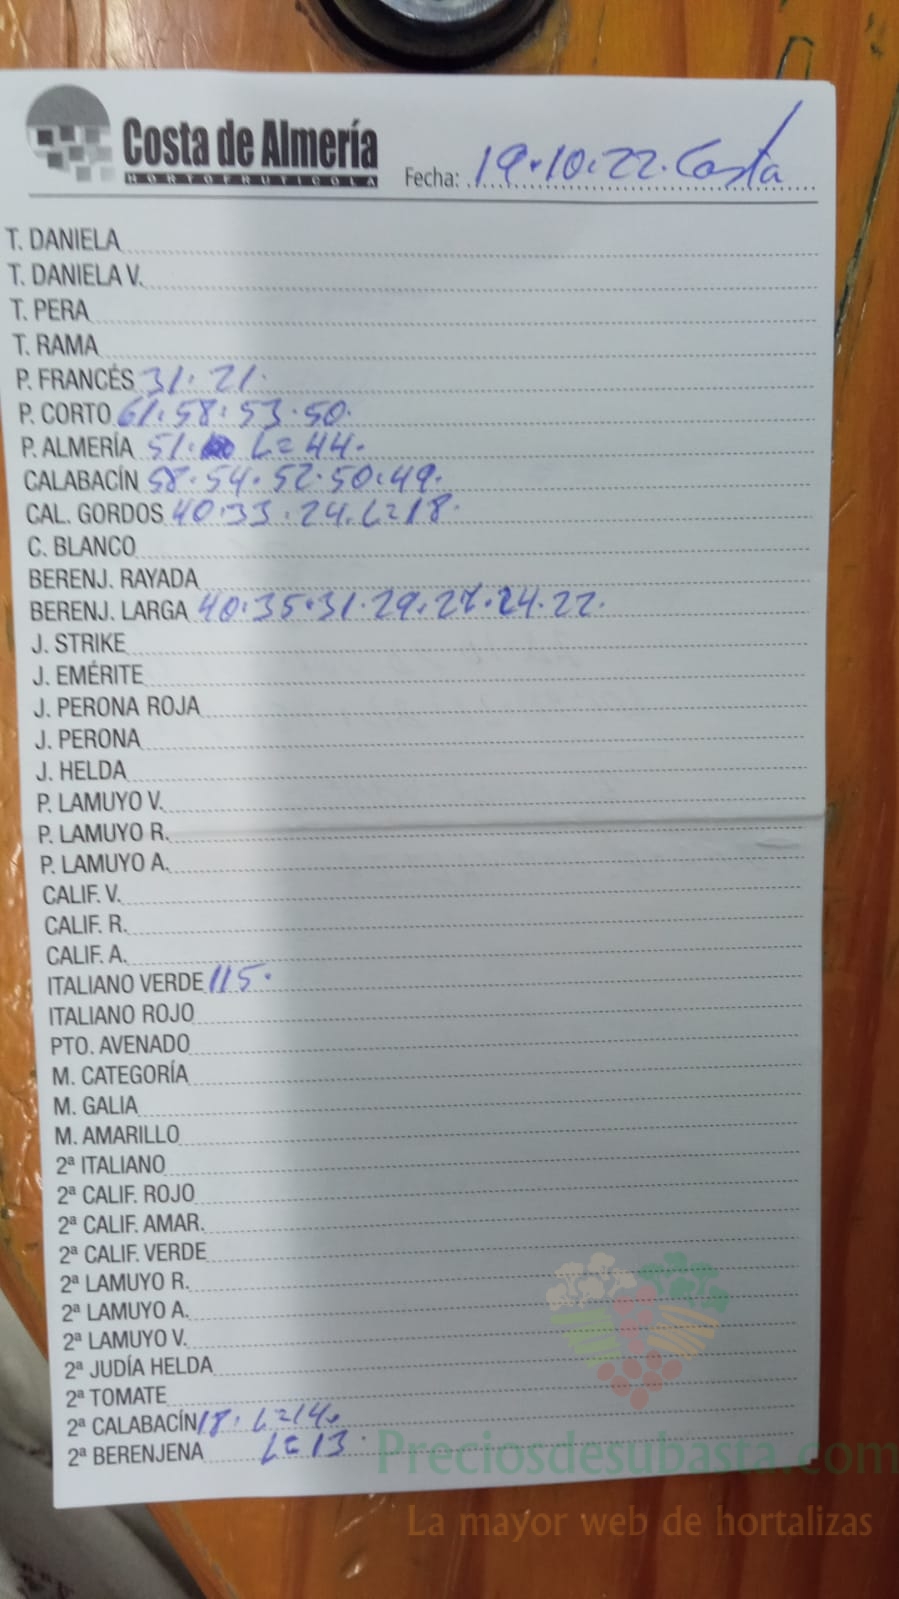 Costa de Almería
HORTOFRUTICOLA
Fecha: 19·10·22·Costa
T. DANIELA
T. DANIELA V.
T. PERA
T. RAMA
P. FRANCÉS 31· 21·
P. CORTO 61· 58· 53·50·
P. ALMERÍA 51· L=44·
CALABACÍN 58·54·52·50·49·
CAL. GORDOS 40·33·24·L=18·
C. BLANCO
BERENJ. RAYADA
BERENJ. LARGA 40·35·31·29·27·24·22·
J. STRIKE
J. EMÉRITE
J. PERONA ROJA
J. PERONA
J. HELDA
P. LAMUYO V.
P. LAMUYO R.
P. LAMUYO A.
CALIF. V.
CALIF. R.
CALIF. A.
ITALIANO VERDE 115·
ITALIANO ROJO
PTO. AVENADO
M. CATEGORÍA
M. GALIA
M. AMARILLO
2ª ITALIANO
2ª CALIF. ROJO
2ª CALIF. AMAR.
2ª CALIF. VERDE
2ª LAMUYO R.
2ª LAMUYO A.
2ª LAMUYO V.
2ª JUDÍA HELDA
2ª TOMATE
2ª CALABACÍN 18· L=14·
2ª BERENJENA L=13·
Preciosdesubasta.com
La mayor web de hortalizas